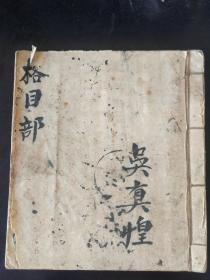 格目部
吳真煌